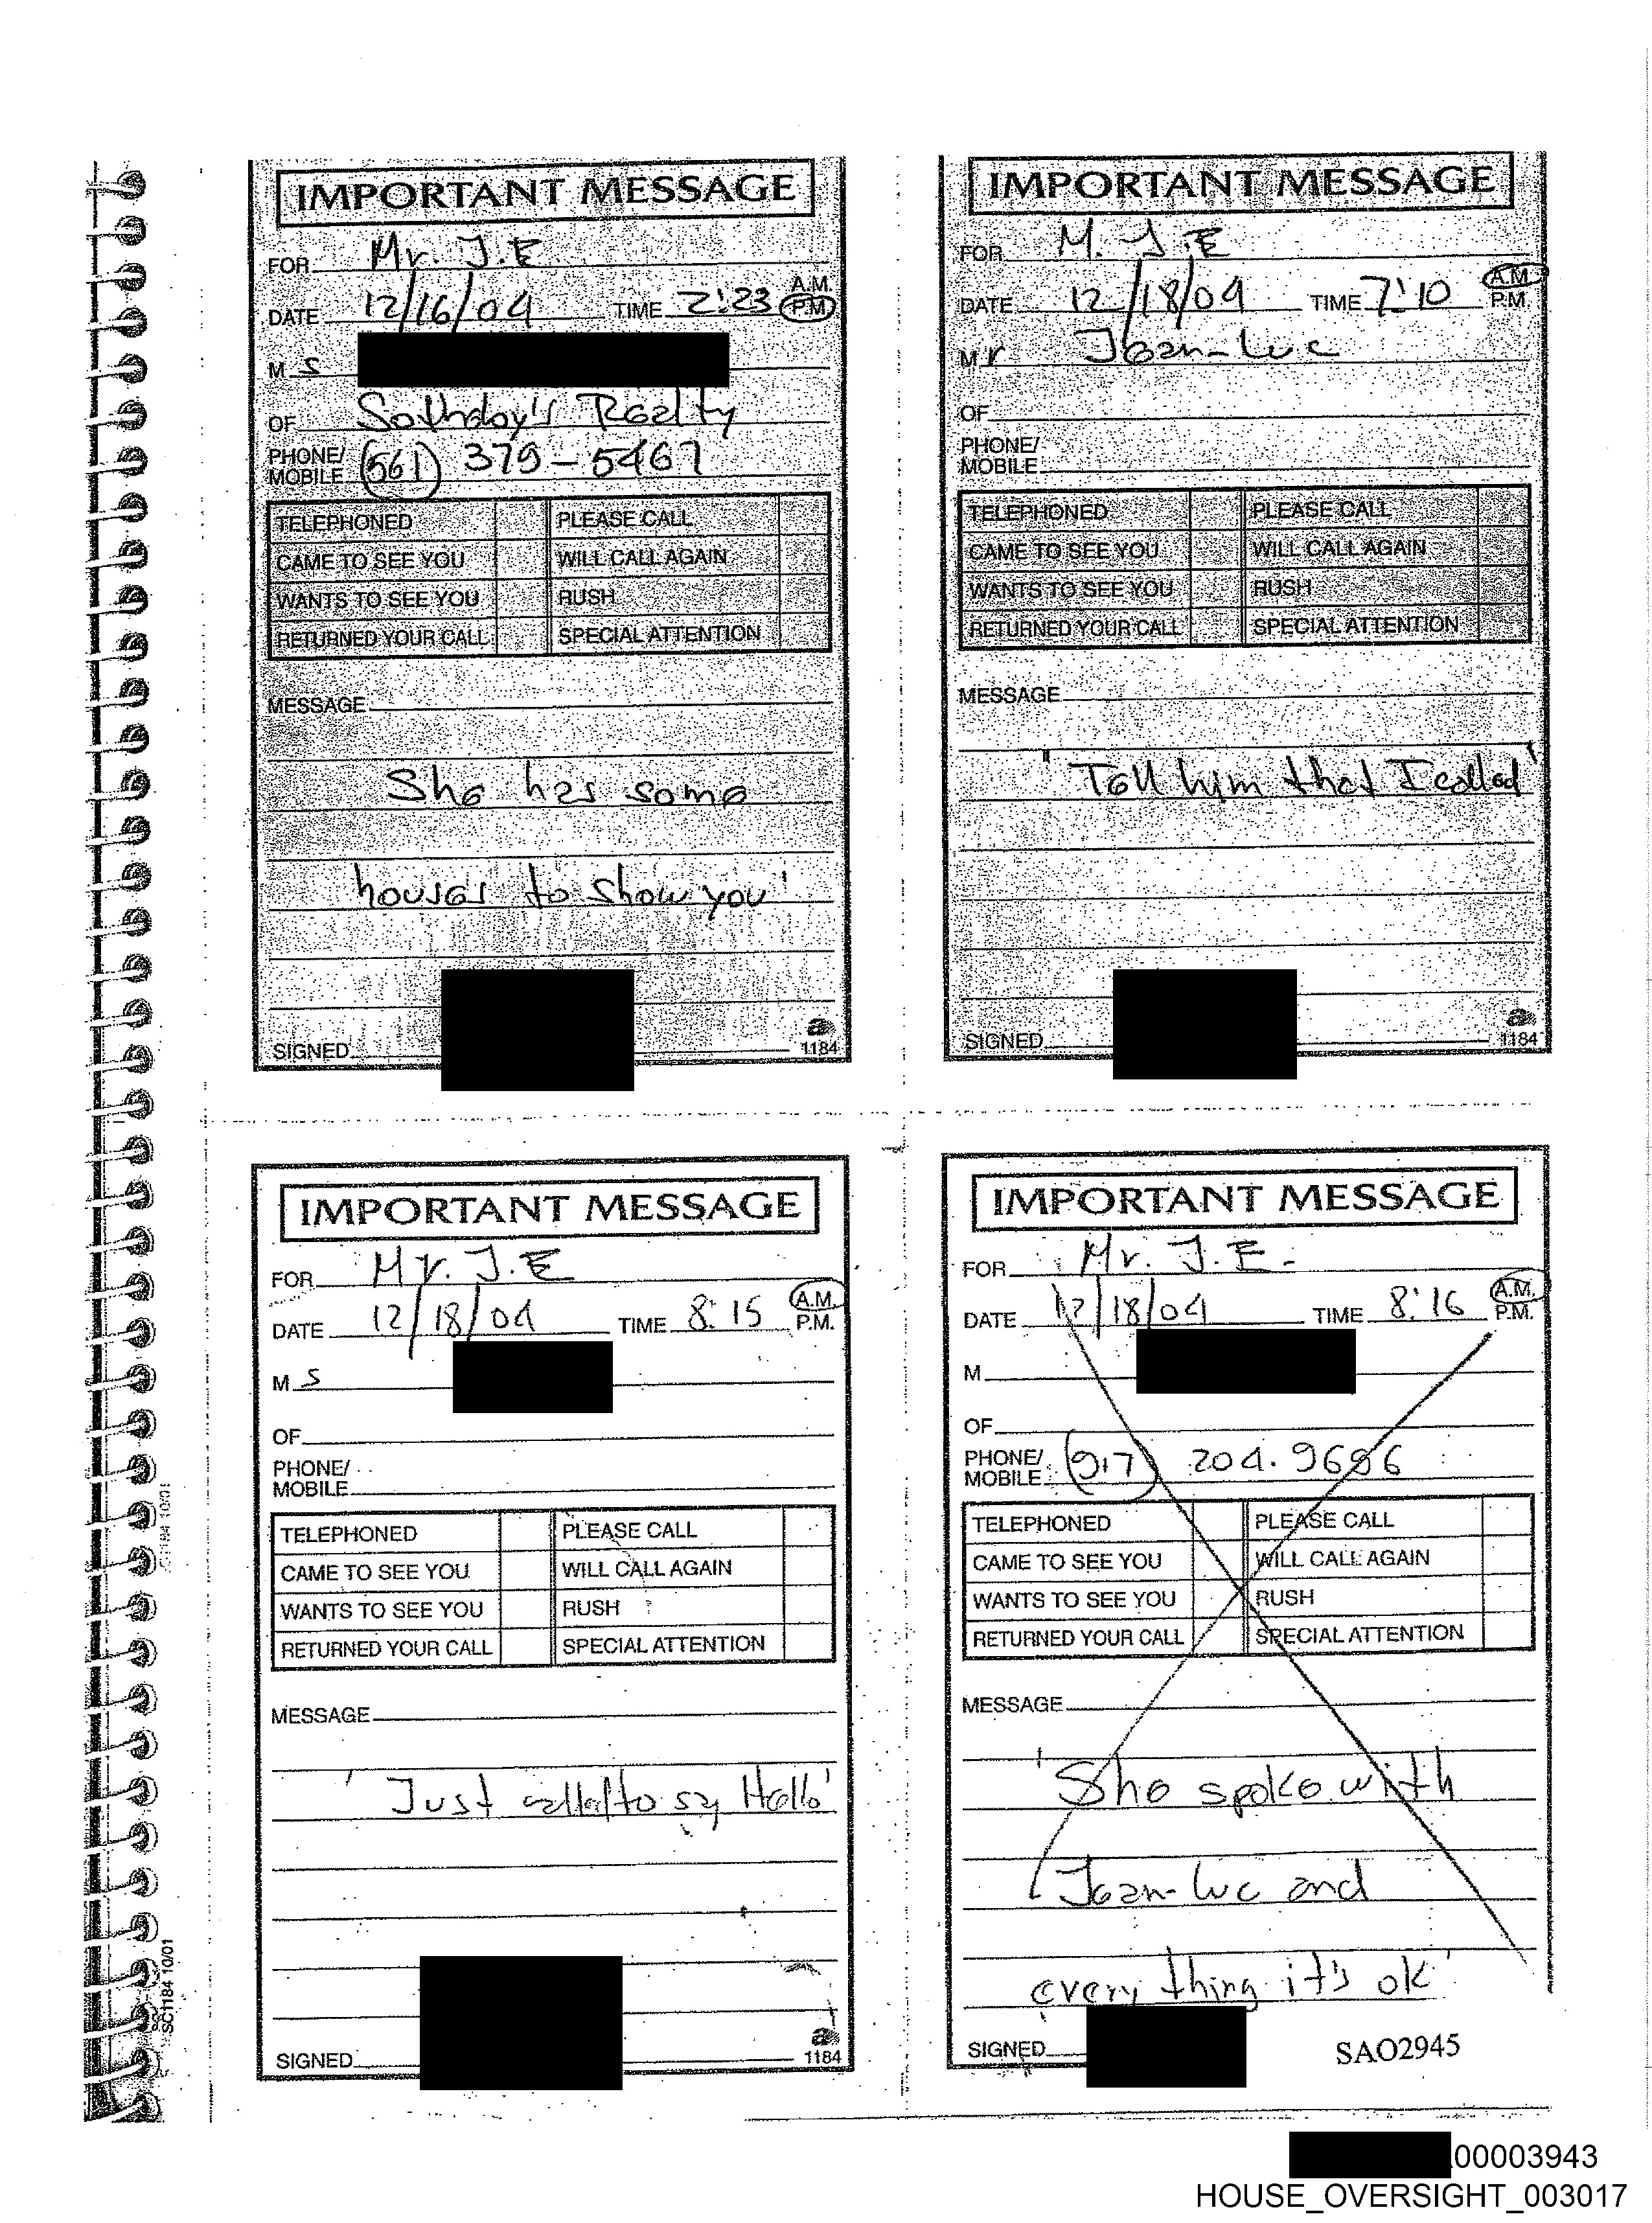 IMPORTANT MESSAGE
FOR Mr. J.E
DATE 12/16/04 TIME 2:23 A.M. P.M.
M S
OF Sothdoy's Realty
PHONE/ MOBILE (561) 379-5467
TELEPHONED PLEASE CALL
CAME TO SEE YOU WILL CALL AGAIN
WANTS TO SEE YOU RUSH
RETURNED YOUR CALL SPECIAL ATTENTION
MESSAGE
She has some
houses to show you'
SIGNED
a
1184
IMPORTANT MESSAGE
FOR M. J.E
DATE 12/18/04 TIME 7:10 A.M. P.M.
Mr Jean-Luc
OF
PHONE/
MOBILE
TELEPHONED PLEASE CALL
CAME TO SEE YOU WILL CALL AGAIN
WANTS TO SEE YOU RUSH
RETURNED YOUR CALL SPECIAL ATTENTION
MESSAGE
"Tell him that I called'
SIGNED
a
1184
IMPORTANT MESSAGE
FOR Mr. J.E
DATE 12/18/04 TIME 8:15 A.M. P.M.
M S
OF
PHONE/
MOBILE
TELEPHONED PLEASE CALL
CAME TO SEE YOU WILL CALL AGAIN
WANTS TO SEE YOU RUSH
RETURNED YOUR CALL SPECIAL ATTENTION
MESSAGE
'Just called to say Hello'
SIGNED
a
1184
IMPORTANT MESSAGE
FOR Mr. J.E.
DATE 12/18/04 TIME 8:16 A.M. P.M.
M
OF
PHONE/ MOBILE (917) 204.9686
TELEPHONED PLEASE CALL
CAME TO SEE YOU WILL CALL AGAIN
WANTS TO SEE YOU RUSH
RETURNED YOUR CALL SPECIAL ATTENTION
MESSAGE
'She spoke with
Jean-Luc and
every thing it's ok'
SIGNED
SAO2945
SC1184 10/01
00003943
HOUSE_OVERSIGHT_003017